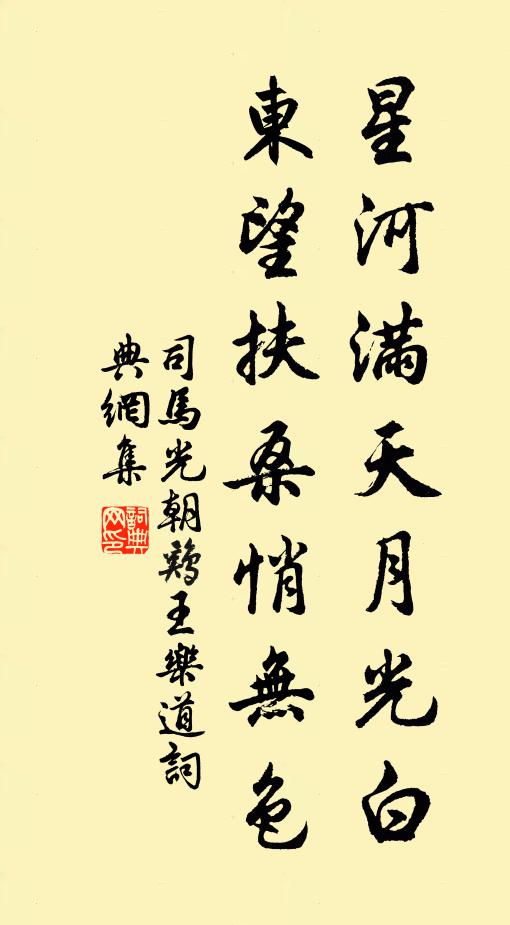 星河滿天月光白
東望扶桑悄無色
司馬光朝鶏王樂道詞
典網集
詞典网印